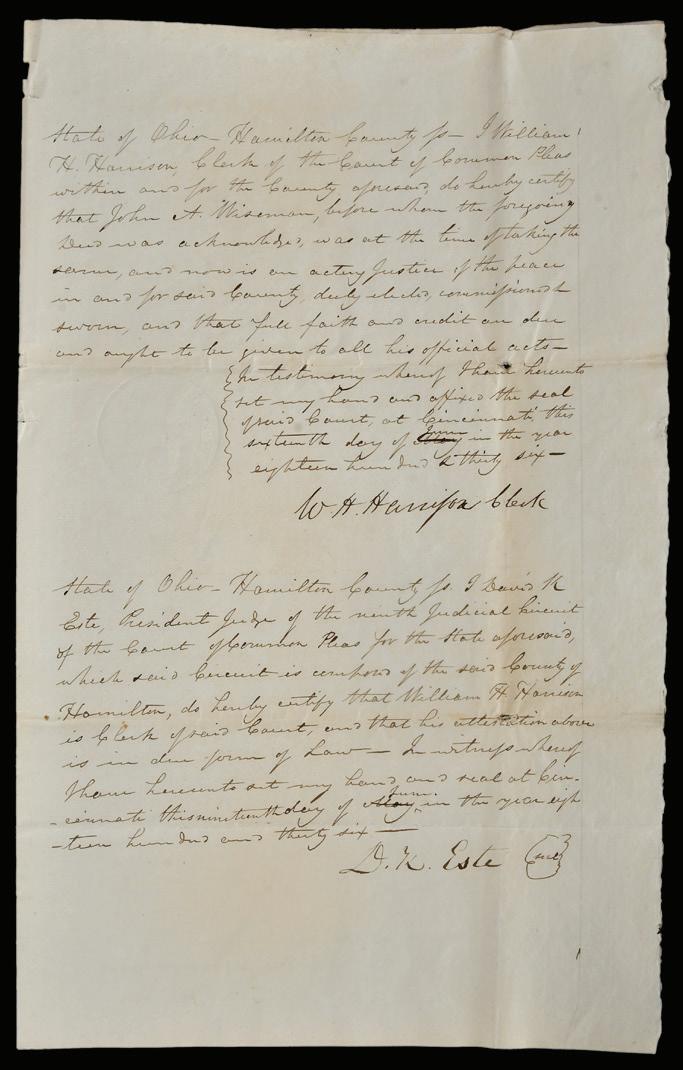 State of Ohio - Hamilton County ss - I William
H. Harrison, Clerk of the Court of Common Pleas
within and for the County aforesaid, do hereby certify
that John A. Wiseman, before whom the foregoing
Deed was acknowledged, was at the time of taking the
same, and now is an acting Justice of the peace
in and for said County, duly elected, commissioned &
sworn, and that full faith and credit are due
and ought to be given to all his official acts -
In testimony whereof I have hereunto
set my hand and affixed the seal
of said Court, at Cincinnati, this
sixteenth day of May June in the year
eighteen hundred & thirty six -
W. H. Harrison Clerk
State of Ohio - Hamilton County ss. I David K
Este, President Judge of the ninth Judicial Circuit
of the Court of Common Pleas for the State aforesaid,
which said Circuit is composed of the said County of
Hamilton, do hereby certify that William H Harrison
is Clerk of said Court, and that his attestation above
is in due form of Law - In witness whereof
I have hereunto set my hand and seal at Cin-
-cinnati this nineteenth day of May June. in the year eigh
-teen hundred and thirty six -
D. K. Este seal